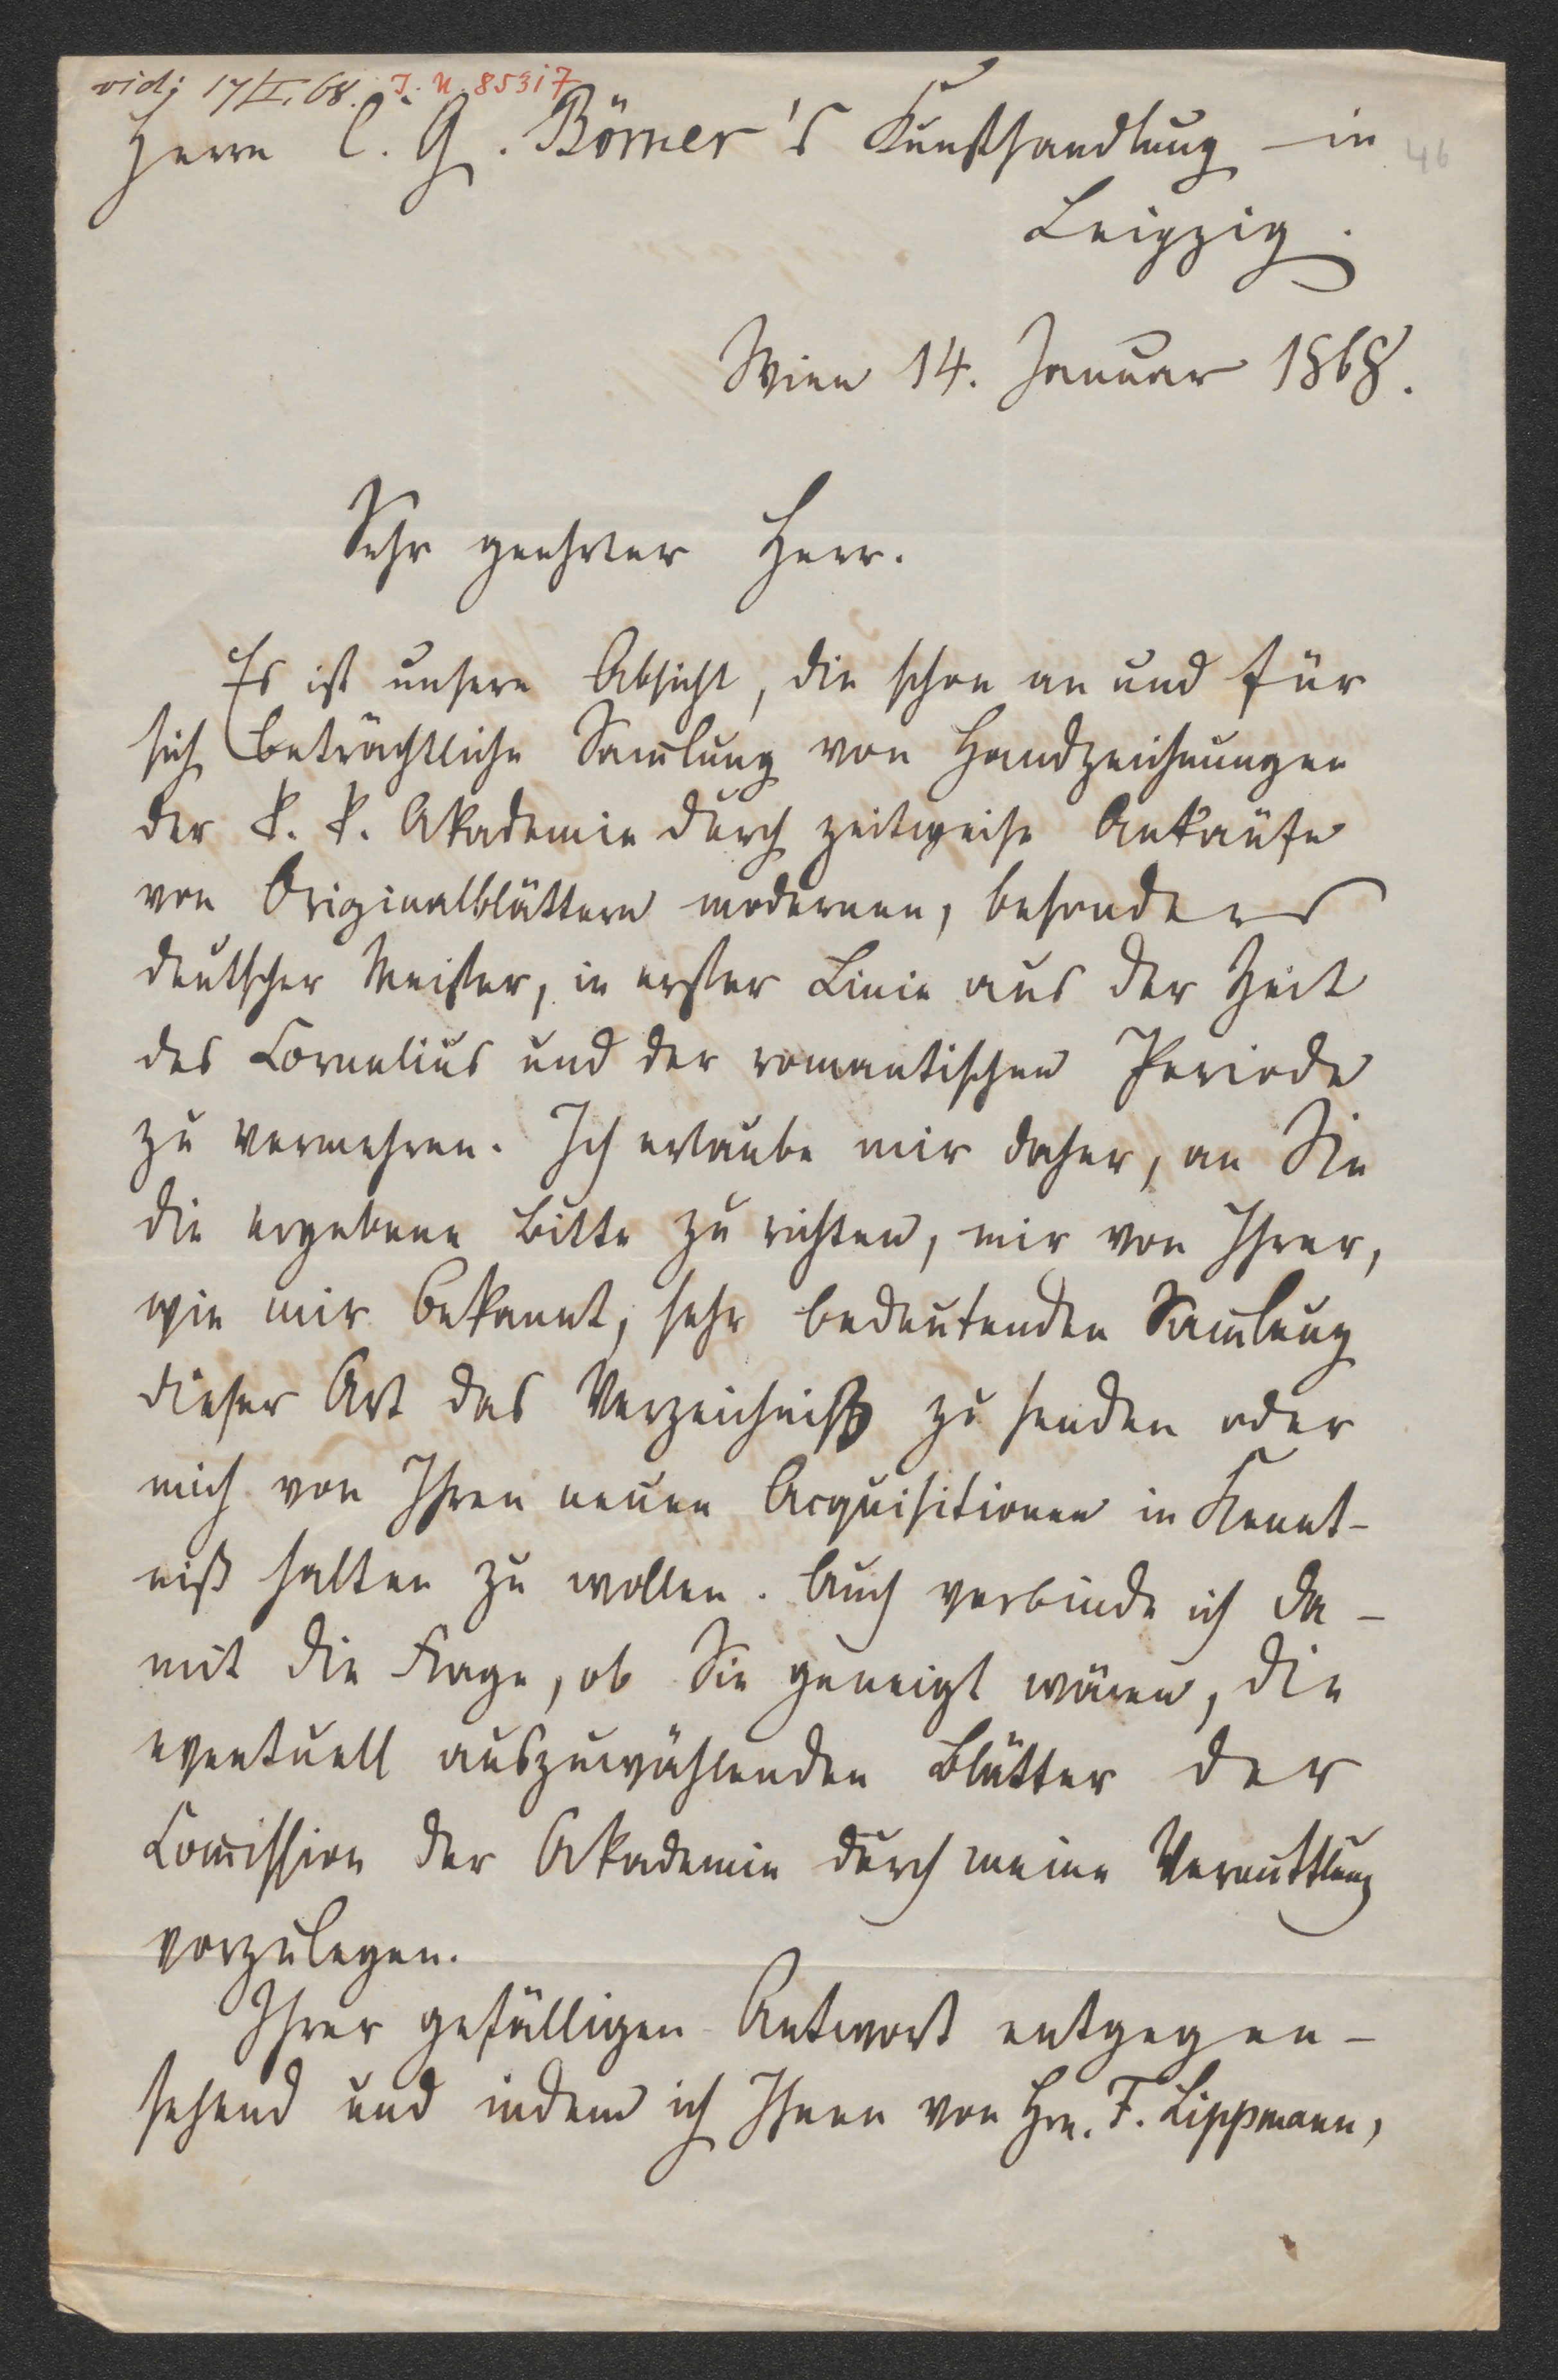 vidi 17/I. 68. J. N. 85317
Herrn C. G. Börner's Kunsthandlung in
46
Leipzig.
Wien 14. Januar 1868.
Sehr geehrter Herr.
Es ist unsere Absicht, die schon an und für
sich beträchtliche Sam̄lung von Handzeichnungen
der k. k. Akademie durch zeitweise Ankäufe
von Originalblättern modernen, besonders
deutscher Meister, in erster Linie aus der Zeit
des Cornelius und der romantischen Periode
zu vermehren. Ich erlaube mir daher, an Sie
die ergebene Bitte zu richten, mir von Ihrer,
wie mir bekannt, sehr bedeutenden Sam̄lung
dieser Art das Verzeichniß zu senden oder
mich von Ihren neuen Acquisitionen in Kennt-
niß halten zu wollen. Auch verbinde ich da-
mit die Frage, ob Sie geneigt wären, die
eventuell auszuwählenden Blätter der
Com̄ission der Akademie durch meine Vermittlung
vorzulegen.
Ihrer gefälligen Antwort entgegen-
sehend und indem ich Ihnen von Hrn. F. Lippmann,